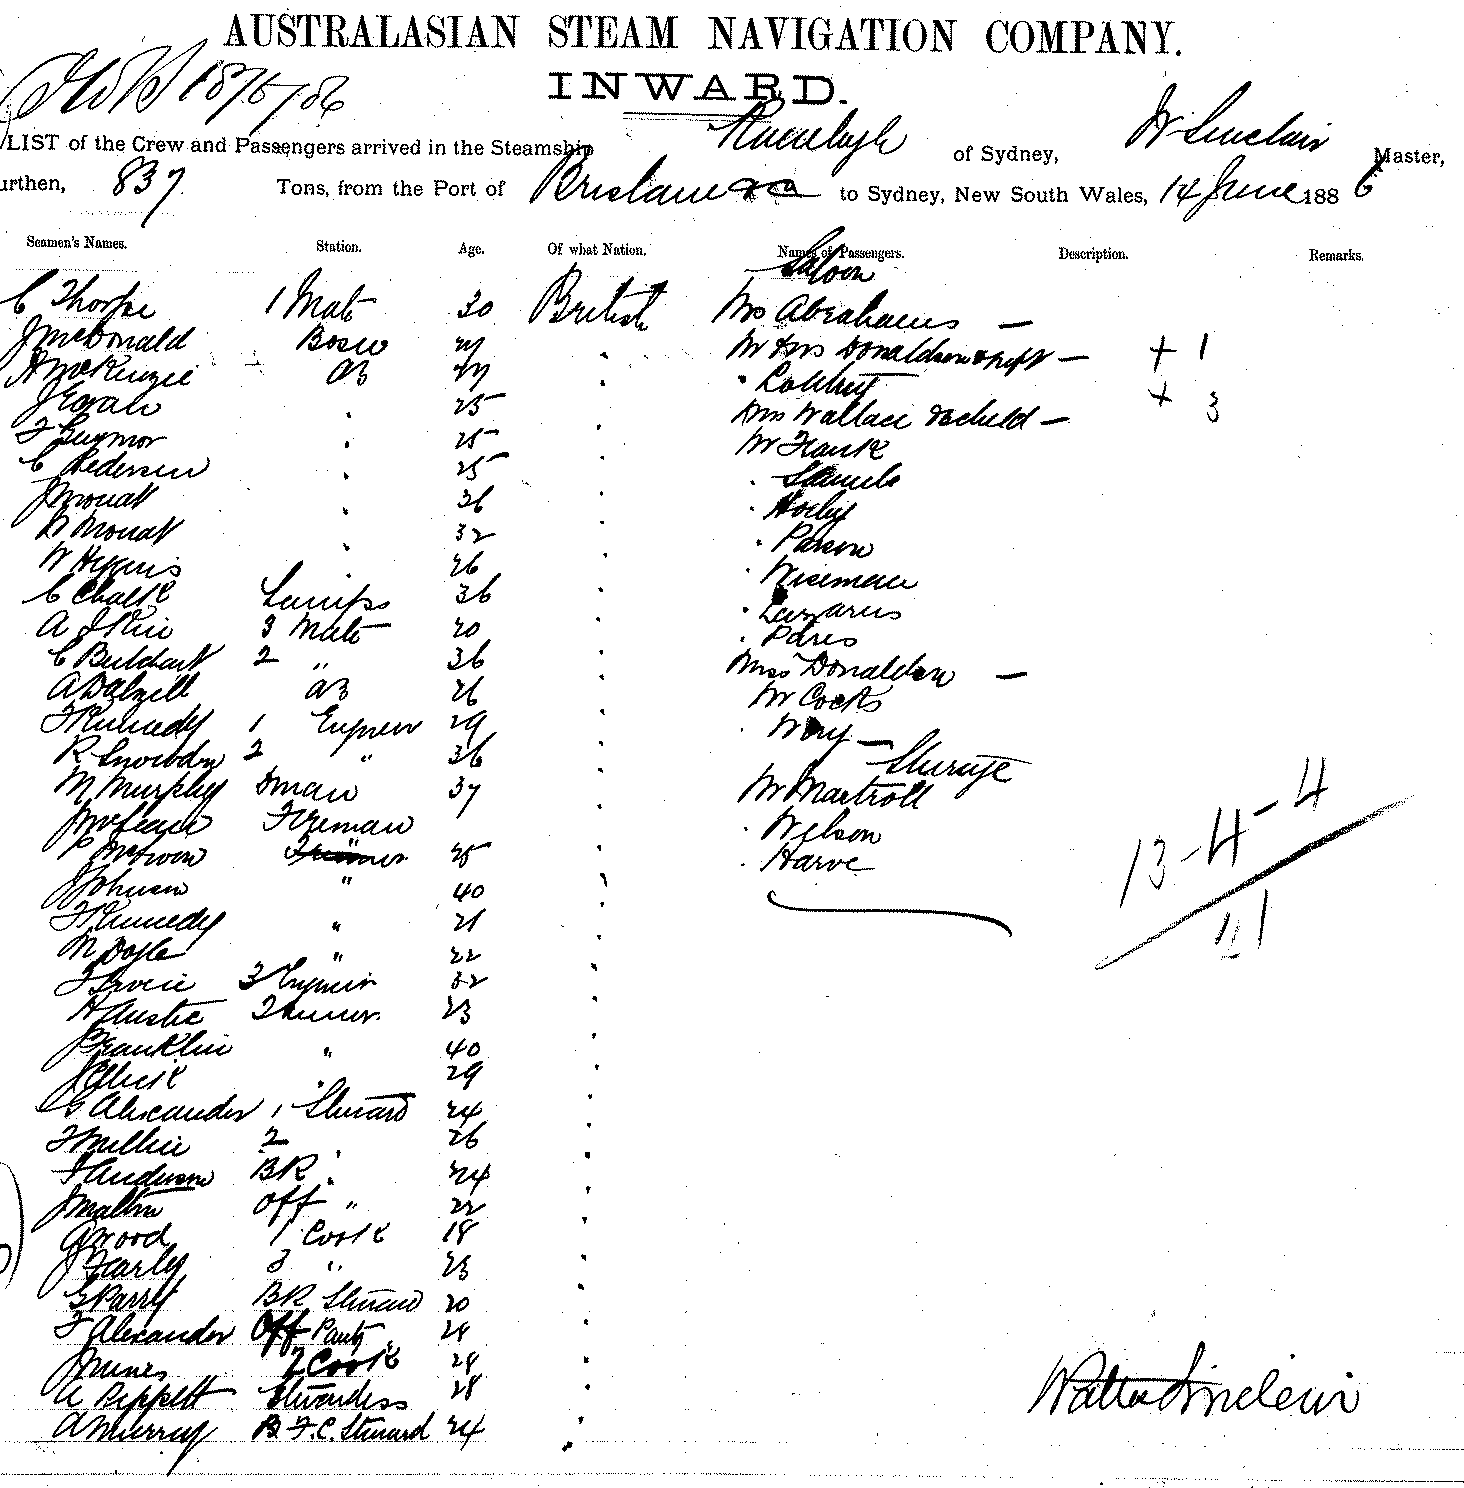 AUSTRALASIAN STEAM NAVIGATION COMPANY.
INWARD.
LIST of the Crew and Passengers arrived in the Steamship Ranelagh of Sydney, W Sinclair Master,
urthen, 837 Tons, from the Port of Brisbane to Sydney, New South Wales, 14 June 1886
Seamen's Names. Station. Age. Of what Nation. Names of Passengers. Description. Remarks.
Saloon
C Thorpe 1 Mate 30 British Mrs Abrahams —
J McDonald Bosn Mr & Mrs Donaldson — + 1
A McKenzie AB
+ 3
25 Mrs Wallace & child —
F Guymor 25 Mr Frank
C Pedersen 25 Samuels
J Mouat 36
D Mouat 32 Parson
W Hyams 26 Wiseman
C Chalk Lamps 36 Lazarus
A 3 Mate 20
C Butchart 2 " 36 Miss Donaldson —
A Dalzell AB 26 Mr Cocks
F Kennedy 1 Engineer 29
R Snowdon 2 " 36 Steerage
M Murphy Dman 37 Mr
J McLean Fireman Wilson 13-4-4
P McGwen " 25 Harve
J Johnson " 40 21
F Kennedy " 21
M Doyle " 22
3 Engineer 32
H Trimmer 23
J Franklin " 40
29
G Alexander 1 Steward 24
2 26
F Anderson BR 24
J Off " 22
G Wood 1 Cook 18
J Fairly 3 " 23
G Parry BR Steward 20
F Alexander Off Panty 28
J 2 Cook 28
A Peppett Stewardess 28
A Murray B F.C. Steward 24
Walter Sinclair